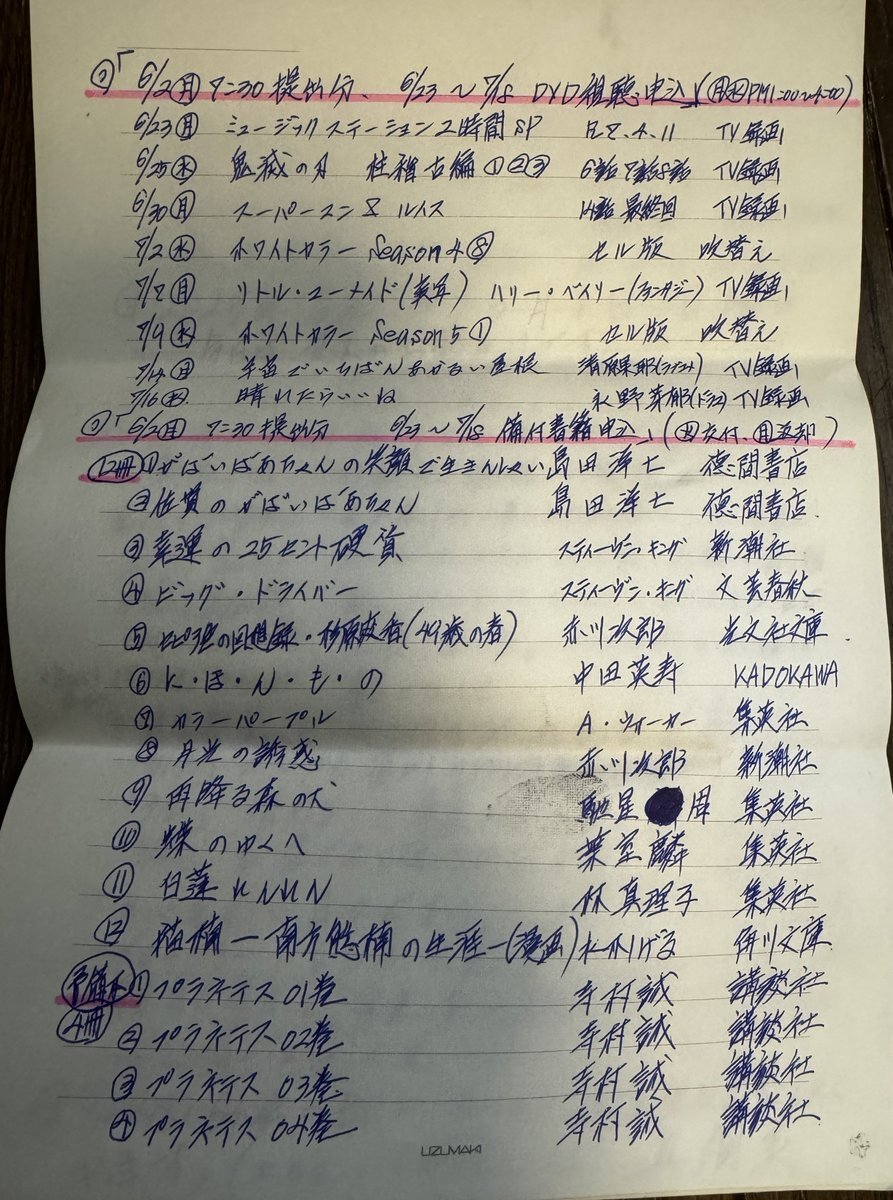 ②「6/2㊊ 7:30 提出分、 6/23 〜 7/18 DVD視聴申込」(㊊㊌PM1:00〜4:00)
6/23㊊ ミュージックステーション2時間SP R7.4.11 TV録画
6/25㊌ 鬼滅の刃 柱稽古編①②③ 6話7話8話 TV録画
6/30㊊ スーパーマン& ルイス 14話 最終回 TV録画
7/2㊌ ホワイトカラー Season4⑧ セル版 吹替え
7/7㊊ リトル・マーメイド(実写) ハリー・ベイリー(ファンタジー) TV録画
7/9㊌ ホワイトカラー Season5① セル版 吹替え
7/14㊊ 宇宙でいちばんあかるい屋根 清原果耶 TV録画
7/16㊌ 晴れたらいいね 永野芽郁(ドラマ) TV録画
②「6/2㊊ 7:30 提出分 6/23 〜 7/18 備付書籍申込」 交付、㊊返却)
12冊 ①がばいばあちゃんの笑顔で生きんしゃい 島田洋七 徳間書店
②佐賀のがばいばあちゃん 島田洋七 徳間書店.
③幸運の25セント硬貨 スティーヴン・キング 新潮社
④ビッグ・ドライバー スティーヴン・キング 文芸春秋
⑤ の回想録・杉原爽香(49歳の春) 赤川次郎 光文社文庫.
⑥に・ほ・ん・も・の 中田英寿 KADOKAWA
⑦カラーパープル A・ウォーカー 集英社
⑧月光の誘惑 赤川次郎 新潮社
⑨雨降る森の犬 馳星 周 集英社
⑩ のゆくへ 葉室麟 集英社
⑪白蓮れんれん 林真理子 集英社
⑫猫楠ー南方熊楠の生涯ー(漫画) 水木しげる 角川文庫
予備本 ①プラネテス 01巻 幸村誠 講談社
4冊 ②プラネテス 02巻 幸村誠 講談社
③プラネテス 03巻 幸村誠 講談社
④プラネテス 04巻 幸村誠 講談社
UZUMAKI